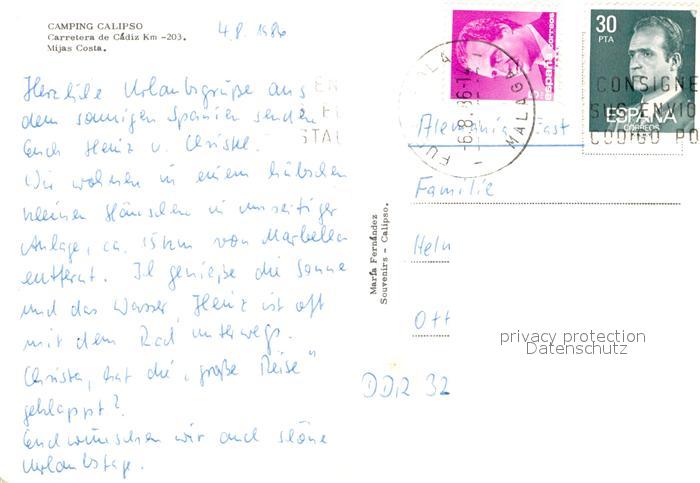 CAMPING CALIPSO
Carretera de Cádiz Km -203.
Mijas Costa.
4.8. 1986
Herzliche Urlaubsgrüße aus
dem sonnigen Spanien senden
Euch Heinz u. Christel.
Wir wohnen in einem hübschen
kleinen Häuschen in
Anlage, ca. 15 km von Marbella
entfernt. Ich genieße die Sonne
und das Wasser, Heinz ist oft
mit dem Rad unterwegs.
Christa, hat die "große Reise"
geklappt?
Euch wünschen wir auch schöne
Urlaubstage.
María Fernández
Souvenirs - Calipso.
españa correos
30
PTA
ESPAÑA
CORREOS
-6.8.86-14
MALAGA
CONSIGNE
SUS ENVIO
CODIGO PO
Alemania East
Familie
Heln
Ott
DDR 32
privacy protection
Datenschutz